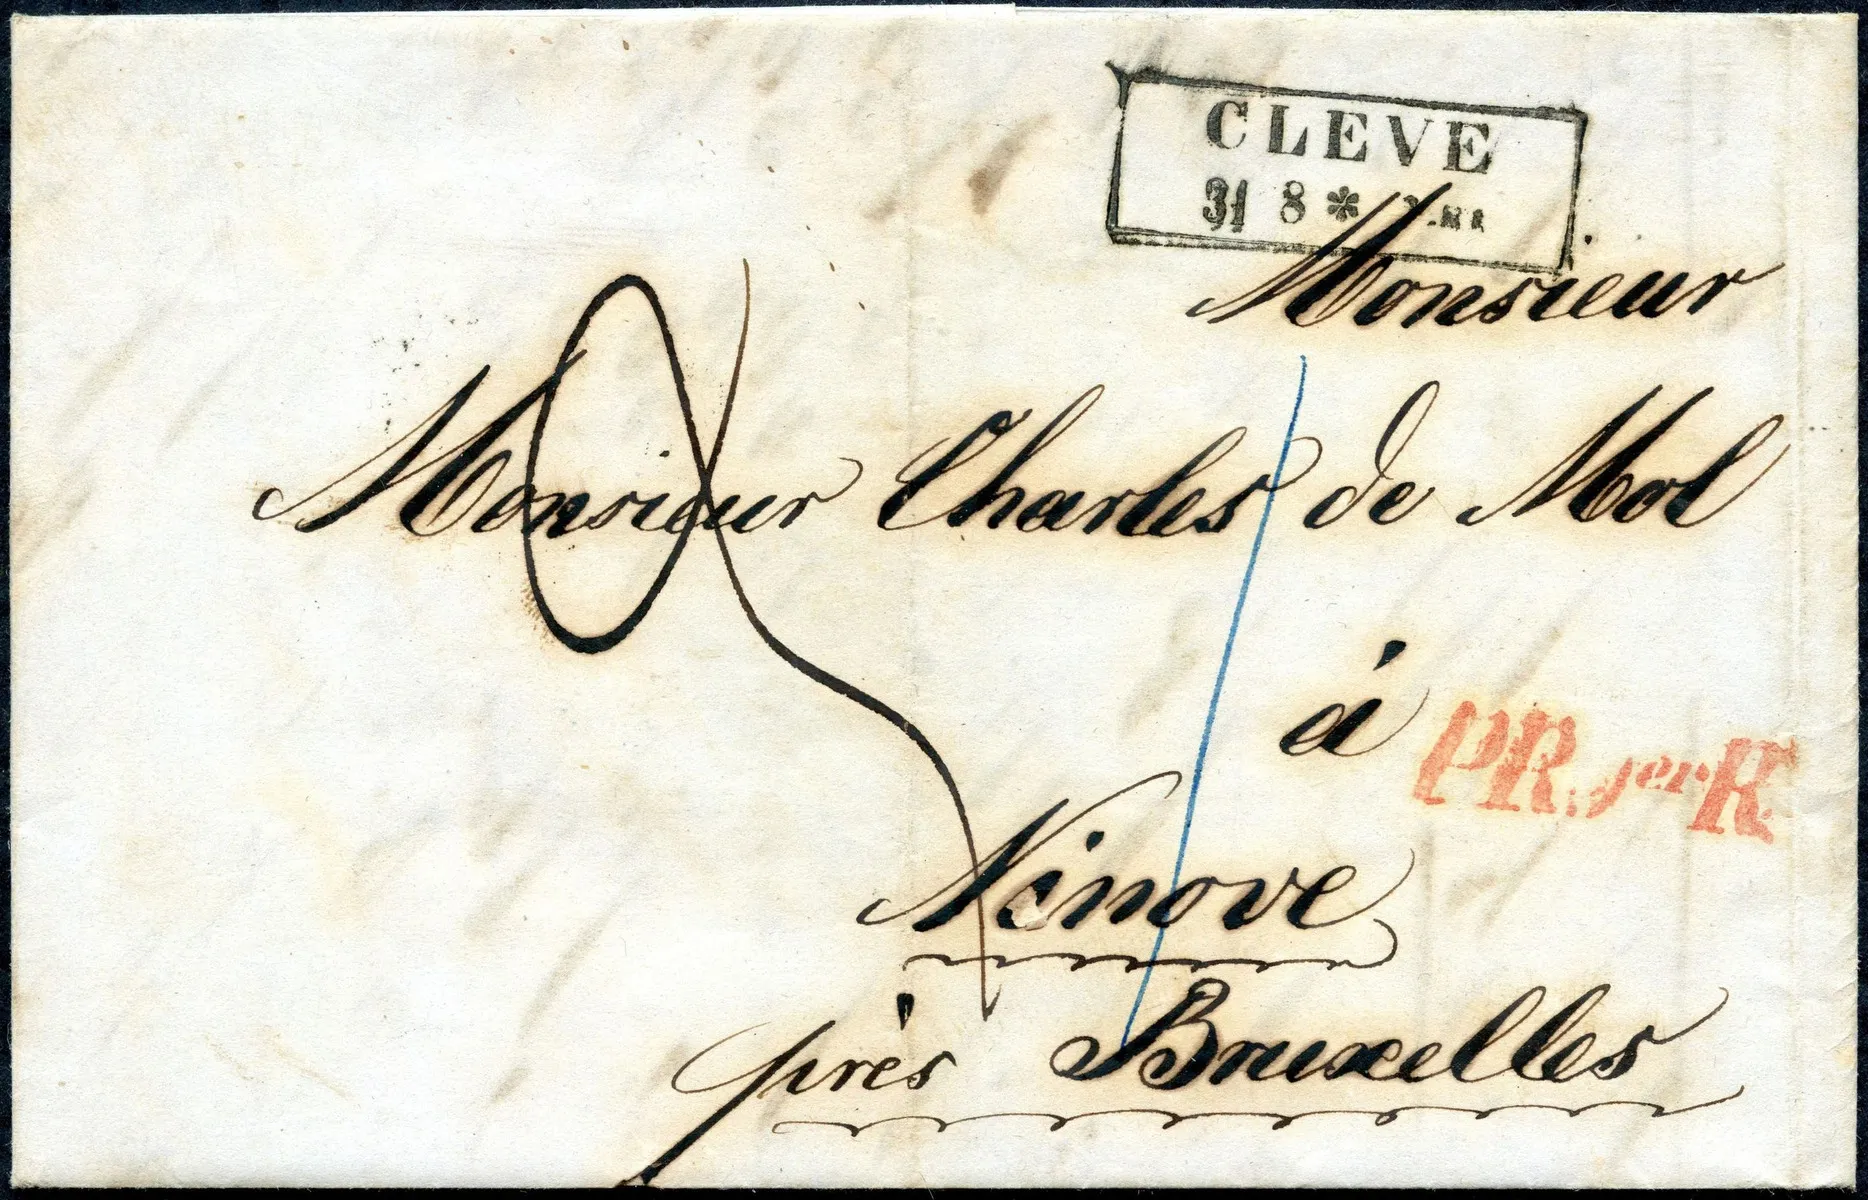 CLEVE
31 8 *
Monsieur
Monsieur Charles de Mol
à
Ninove
près Bruxelles
PR. 1er R.